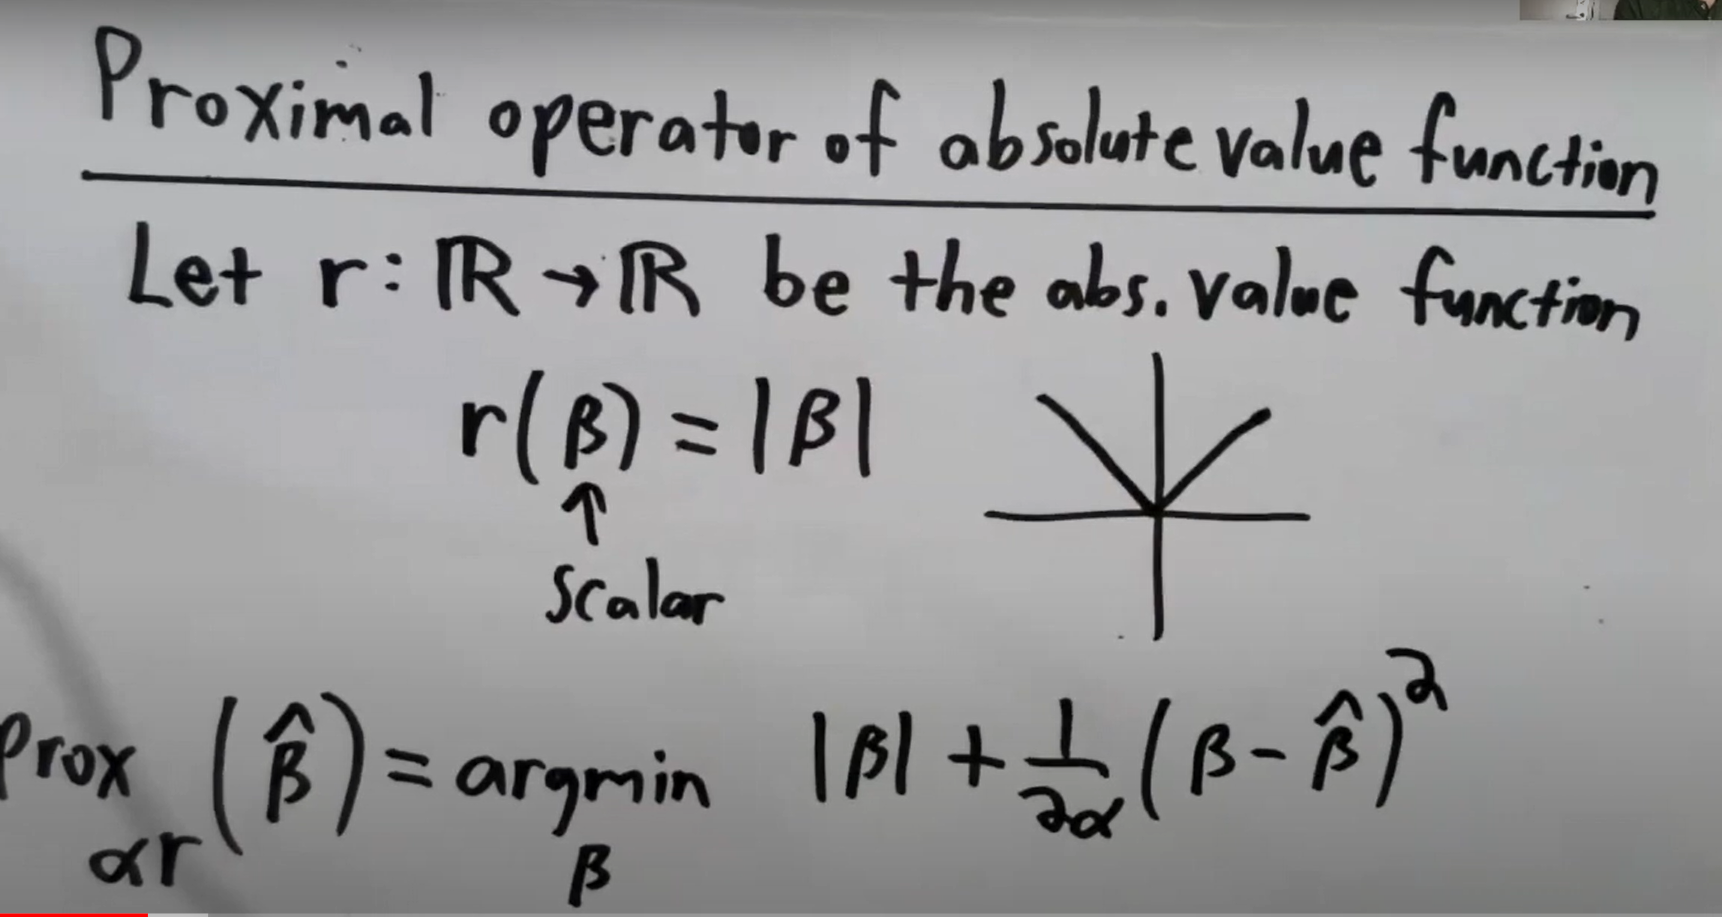 Proximal operator of absolute value function
Let r: ℝ → ℝ be the abs. value function
r(β) = |β|
↑
scalar
Prox_{αr}(β̂) = argmin_β |β| + 1/2α (β - β̂)²